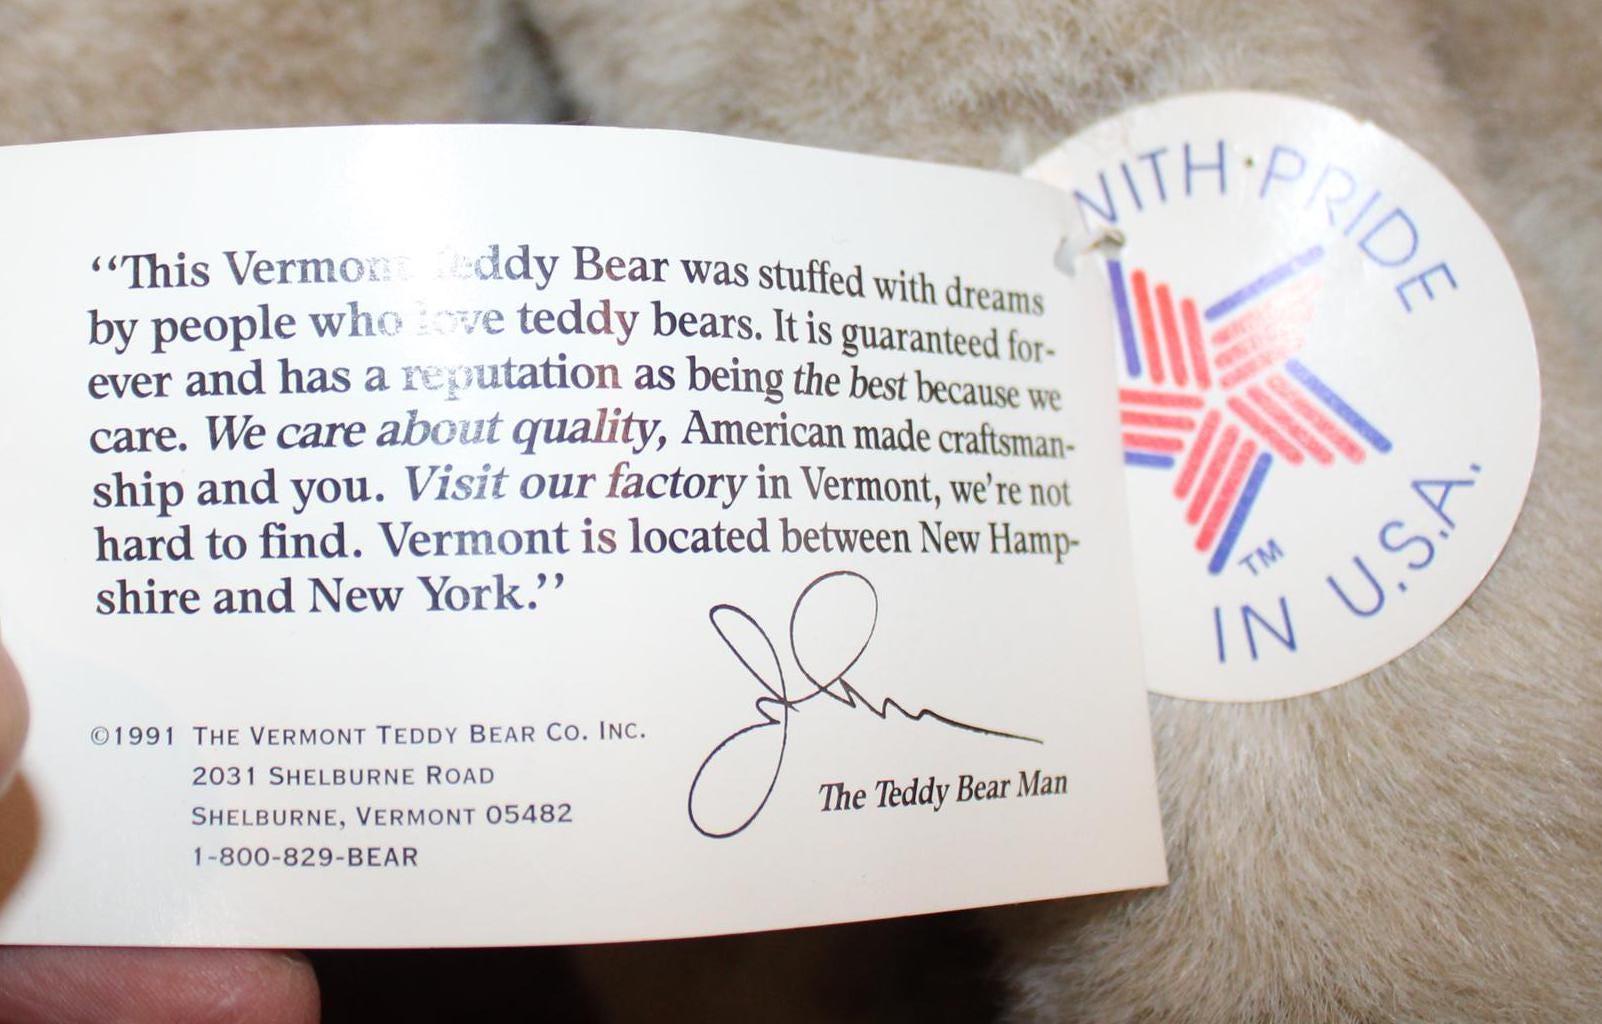 “This Vermont Teddy Bear was stuffed with dreams
by people who love teddy bears. It is guaranteed for-
ever and has a reputation as being the best because we
care. We care about quality, American made craftsman-
ship and you. Visit our factory in Vermont, we're not
hard to find. Vermont is located between New Hamp-
shire and New York.”
The Teddy Bear Man
©1991 THE VERMONT TEDDY BEAR CO. INC.
2031 SHELBURNE ROAD
SHELBURNE, VERMONT 05482
1-800-829-BEAR
WITH·PRIDE
TM
IN U.S.A.